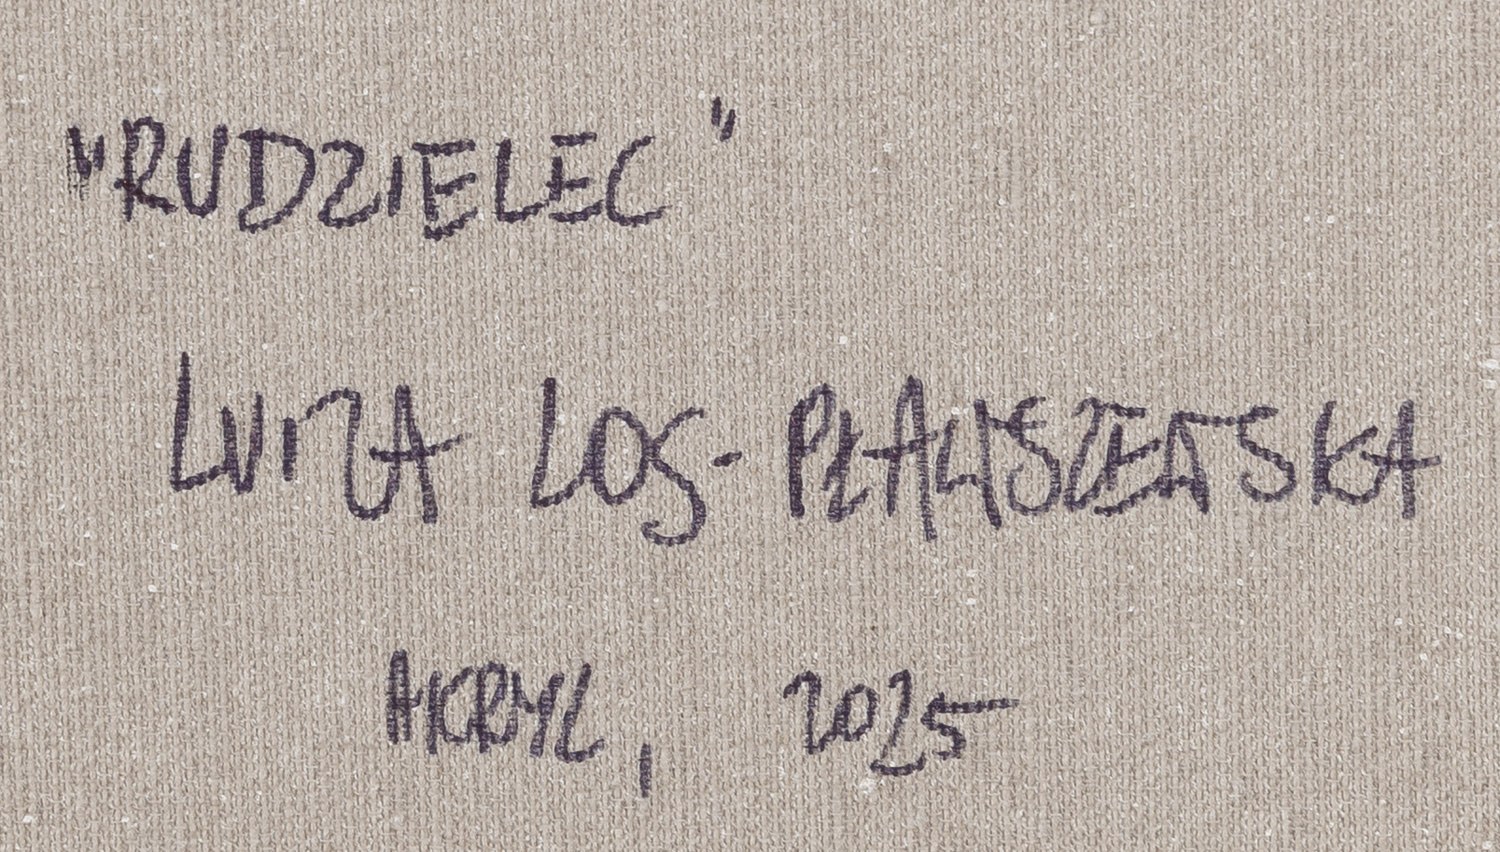 "RUDZIELEC"
LUIZA LOS-PŁAWSZEWSKA
AKRYL, 2025